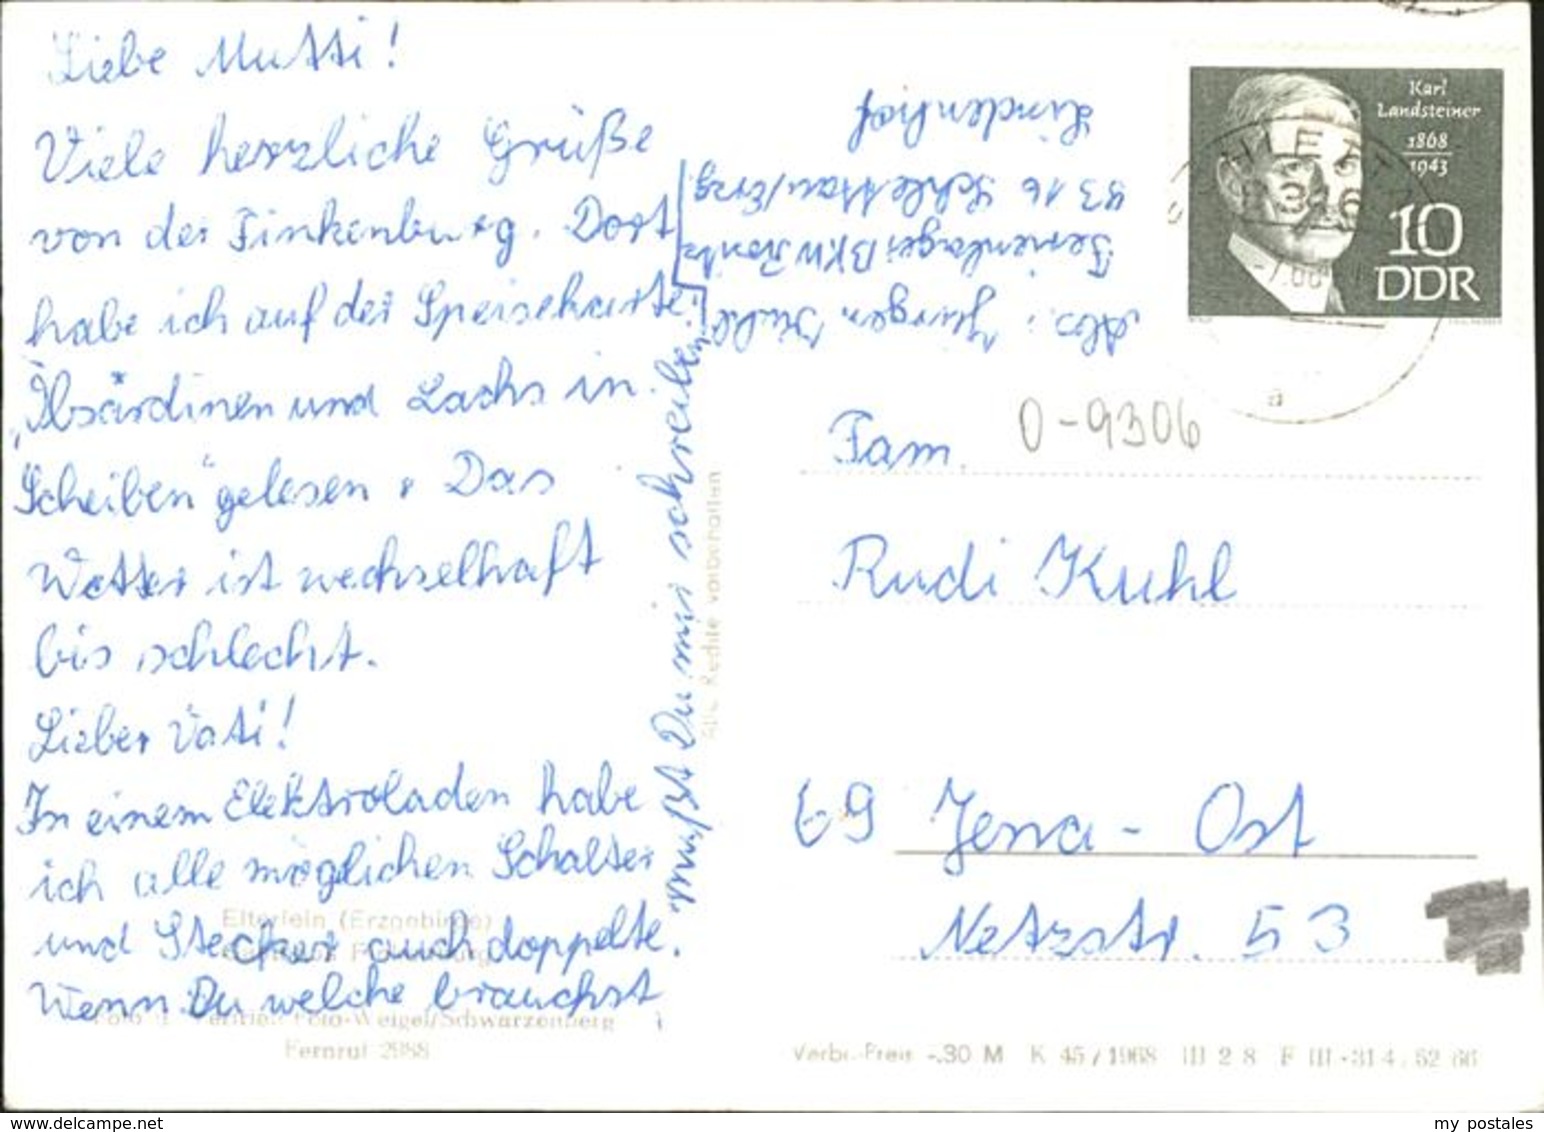 Liebe Mutti!
Viele herzliche Grüße
von der Finkenburg. Dort
habe ich auf der Speisekarte
„Ölsardinen und Lachs in
Scheiben" gelesen. Das
Wetter ist wechselhaft
bis schlecht.
Lieber Vati!
In einem Elektroladen habe
ich alle möglichen Schalter
und Stecker auch doppelte.
Wenn Du welche brauchst
mußt Du mir schreiben.
Elterlein (Erzgebirge)
Foto-Weigel/Schwarzenberg
Fernruf 2988
Alle Rechte vorbehalten
Abs.: Jürgen Kuhl
Ferienlager BKW
9316 Schlettau/Erzg.
Lindenhof
Karl
Landsteiner
1868
1943
10
DDR
9316
a
O-9306
Fam.
Rudi Kuhl
69 Jena-Ost
Netzstr. 53
Verbr.-Preis -.30 M K 45/1968 III 2 8
my postales
www.delcampe.net